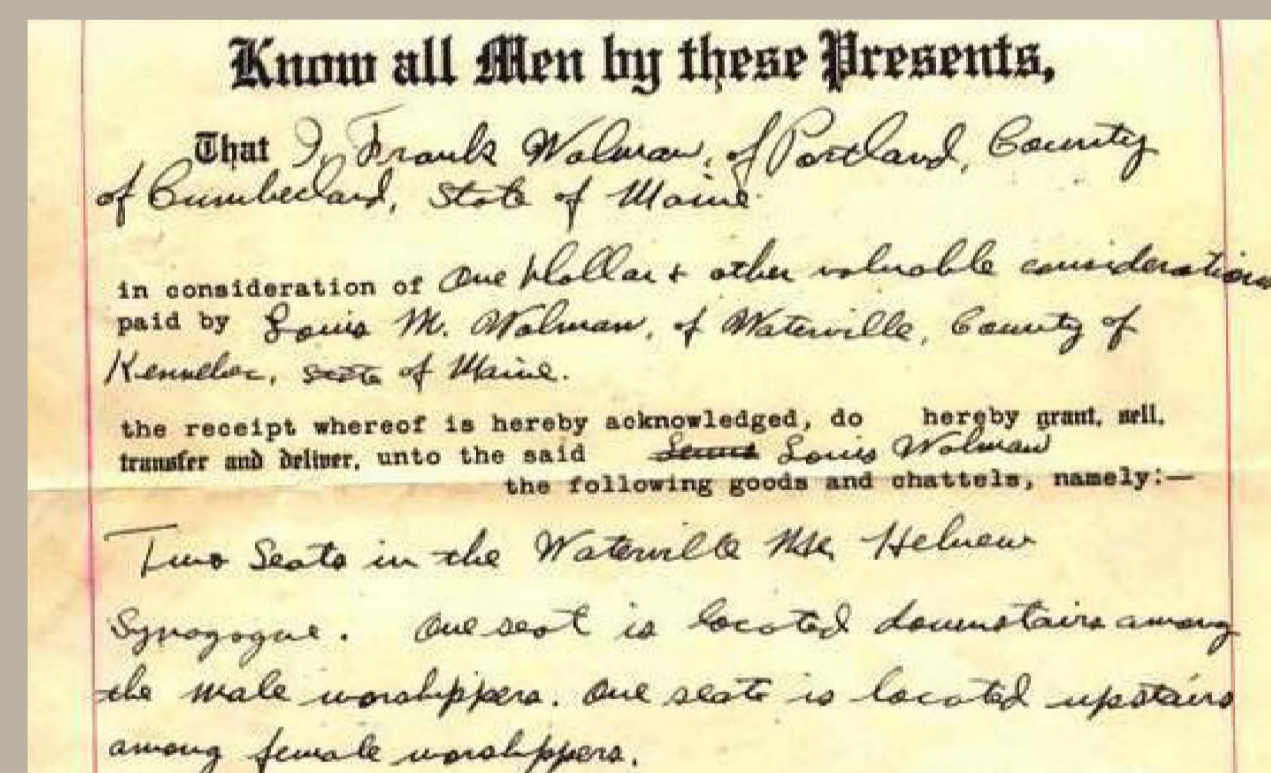 Know all Men by these Presents,
That I, Frank Wolman, of Portland, County
of Cumberland, State of Maine
in consideration of One Dollar & other valuable considerations
paid by Louis M. Wolman, of Waterville, County of
Kennebec, State of Maine.
the receipt whereof is hereby acknowledged, do hereby grant, sell,
transfer and deliver, unto the said Louis Wolman
the following goods and chattels, namely:—
Two Seats in the Waterville Me. Hebrew
Synagogue. One seat is located downstairs among
the male worshippers. One seat is located upstairs
among female worshippers.